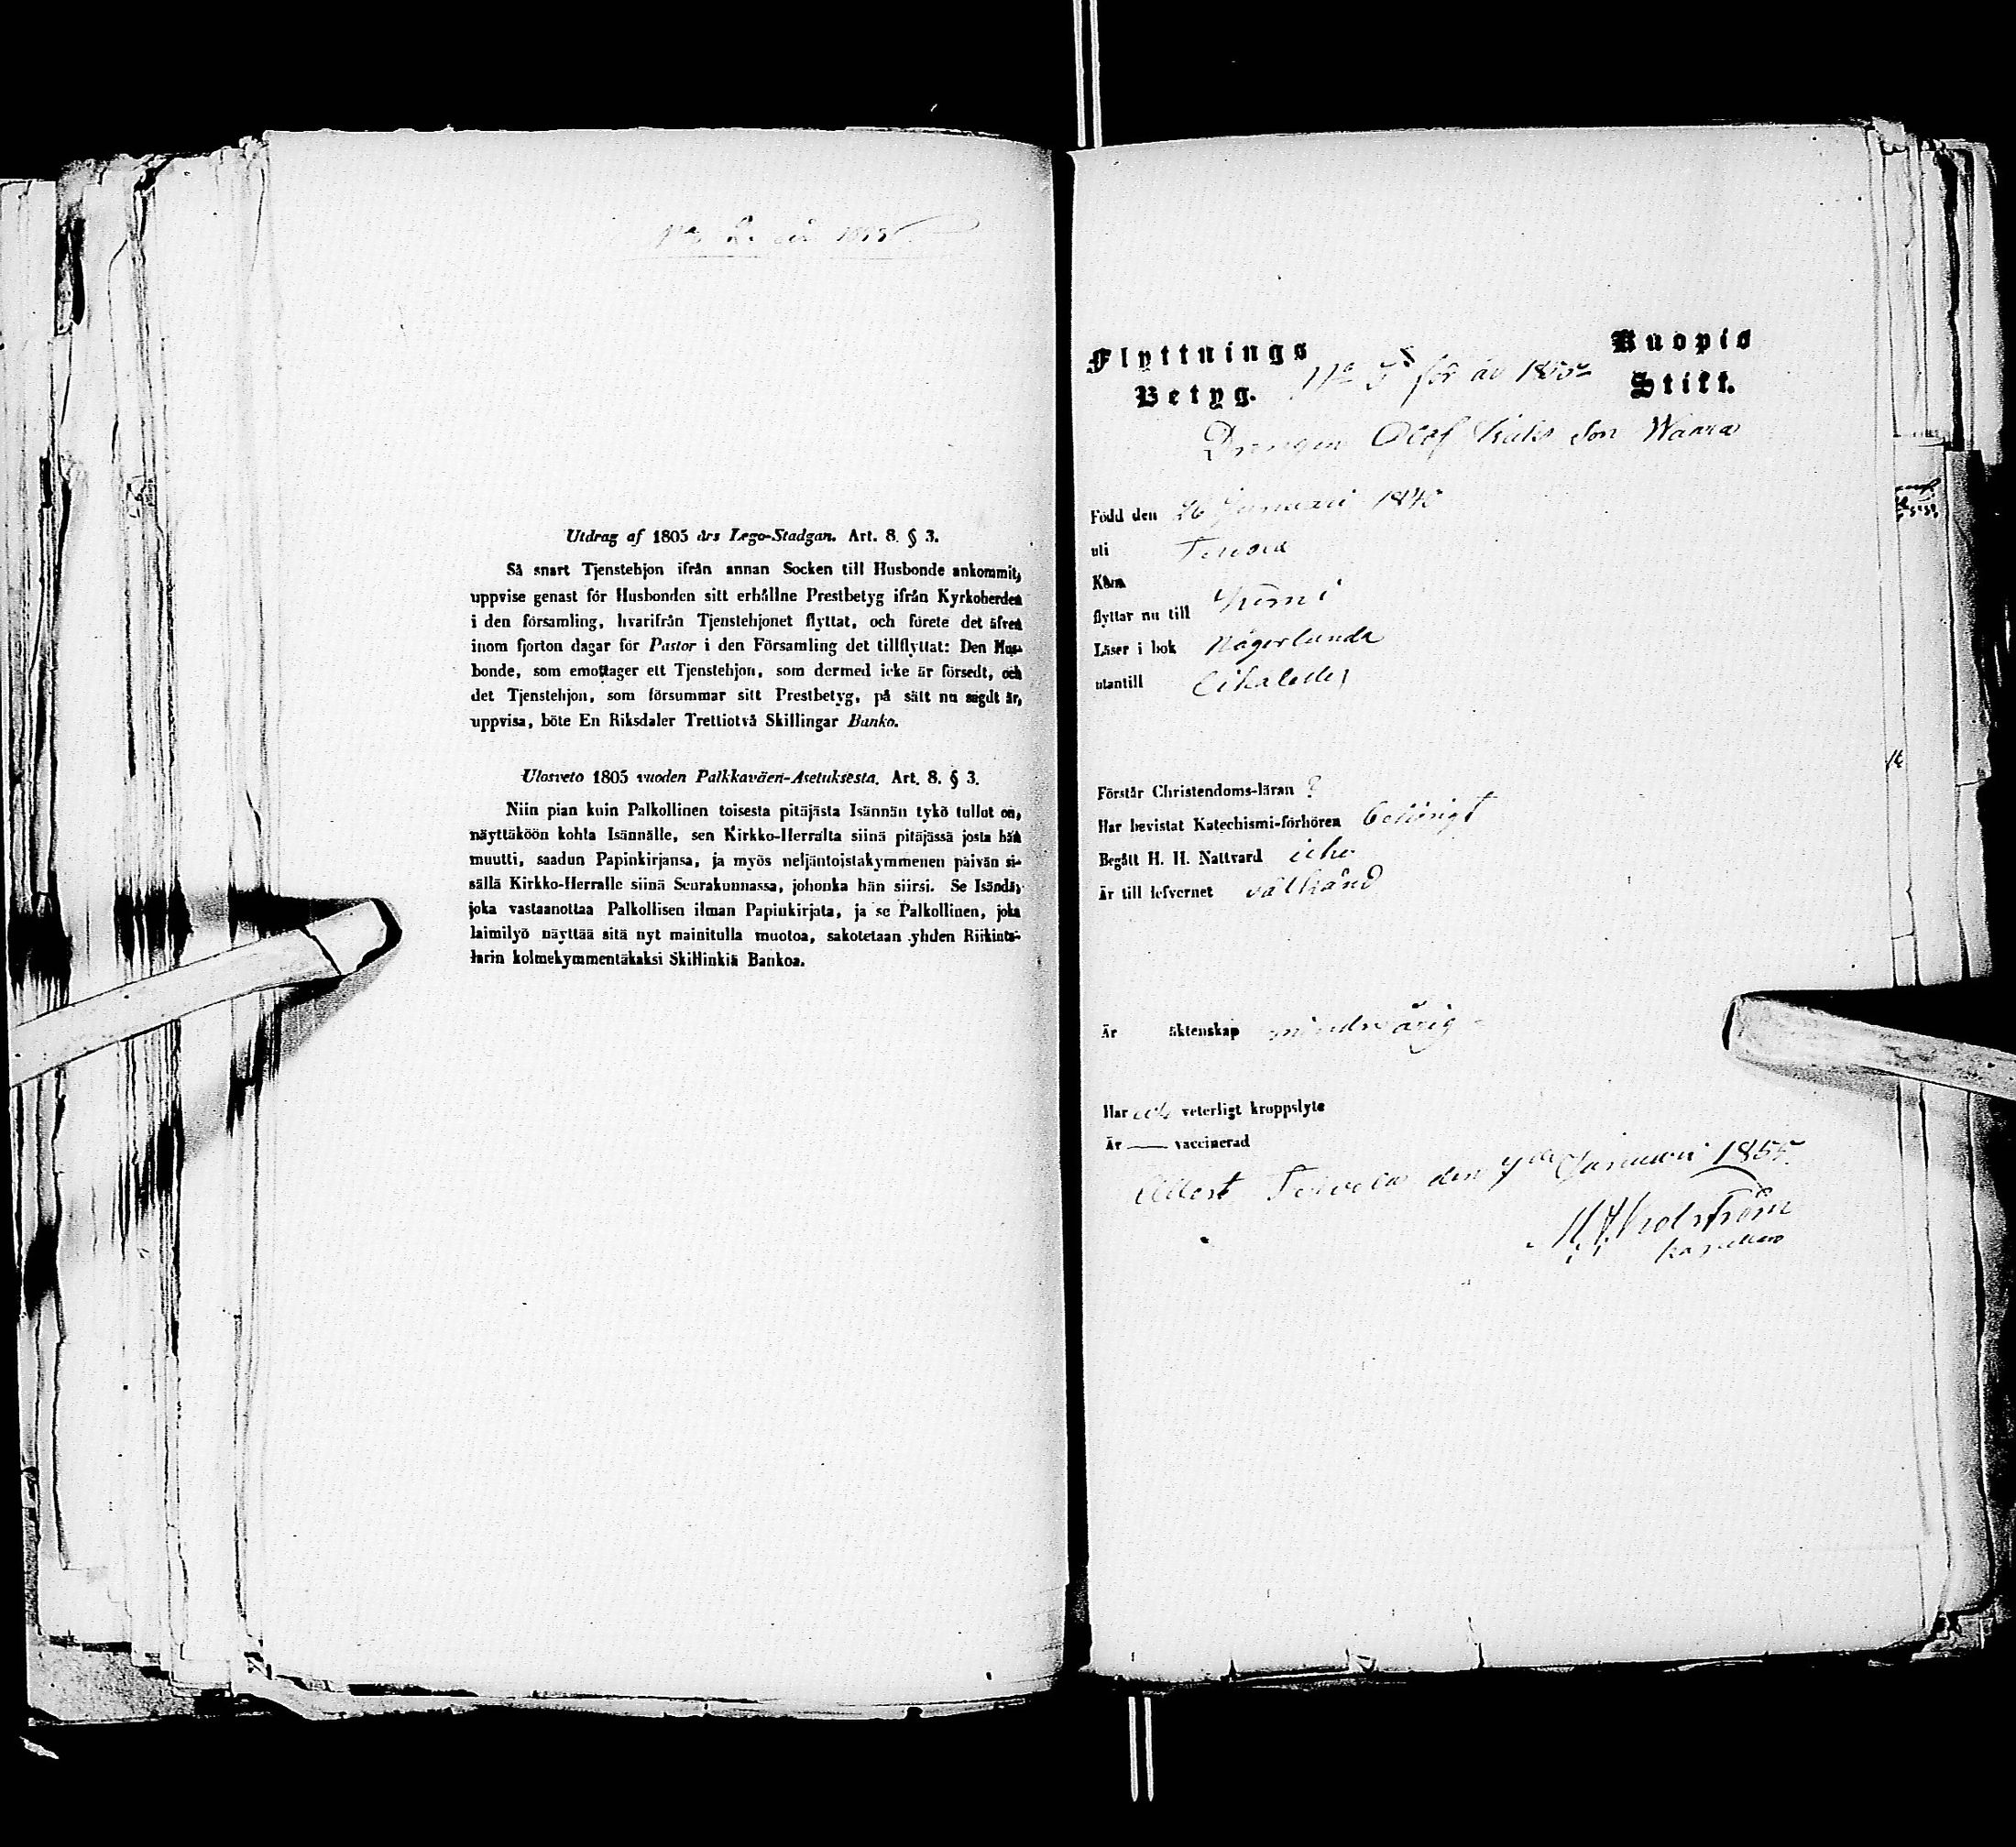 No 2. år 1855.
Utdrag af 1805 års Lego-Stadgan. Art. 8. § 3.
Så snart Tjenstehjon ifrån annan Socken till Husbonde ankommit,
uppvise genast för Husbonden sitt erhållne Prestbetyg ifrån Kyrkoherden
i den församling, hvarifrån Tjenstehjonet flyttat, och förete det äfven
inom fjorton dagar för Pastor i den Församling det tillflyttat: Den Hus-
bonde, som emottager ett Tjenstehjon, som dermed icke är försedt, och
det Tjenstehjon, som försummar sitt Prestbetyg, på sätt nu sagdt är,
uppvisa, böte En Riksdaler Trettiotvå Skillingar Banko.
Ulosveto 1805 vuoden Palkkaväen-Asetuksesta. Art. 8. § 3.
Niin pian kuin Palkollinen toisesta pitäjästa Isännän tykö tullut on,
näyttäköön kohta Isännälle, sen Kirkko-Herralta siinä pitäjässä josta hän
muutti, saadun Papinkirjansa, ja myös neljäntoistakymmenen päivän si-
sällä Kirkko-Herralle siinä Seurakunnassa, johonka hän siirsi. Se Isändä,
joka vastaanottaa Palkollisen ilman Papinkirjata, ja se Palkollinen, joka
laimilyö näyttää sitä nyt mainitulla muotoa, sakotetaan yhden Riikinta-
larin kolmekymmentäkaksi Skillinkiä Bankoa.
Flyttnings
Betyg.
No 5 för år 1855
Kuopio
Stift.
Drengen Olof son Waara
Född den 26 Januari 1840
uti Tervola
Kom
flyttar nu till Kemi
Läser i bok någorlunda
utantill likaledes
Förstår Christendoms-läran ?
Har bevistat Katechismi-förhören behörigt
Begått H. H. Nattvard icke
Är till lefvernet välkänd
Är äktenskap minderårig
Har icke veterligt kroppslyte
Är — vaccinerad
Attest. Tervola den Januari 1855.